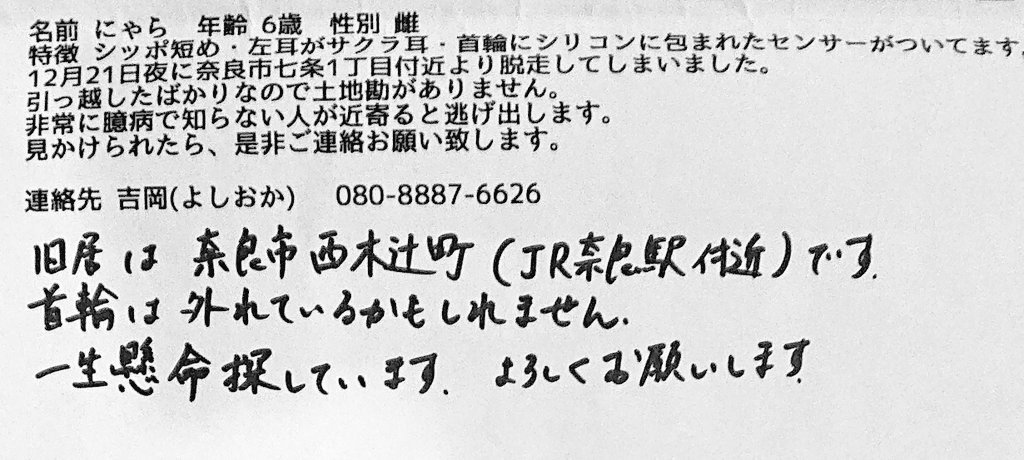 名前 にゃら　年齢 6歳　性別 雌
特徴 シッポ短め・左耳がサクラ耳・首輪にシリコンに包まれたセンサーがついてます。
12月21日夜に奈良市七条1丁目付近より脱走してしまいました。
引っ越したばかりなので土地勘がありません。
非常に臆病で知らない人が近寄ると逃げ出します。
見かけられたら、是非ご連絡お願い致します。
連絡先 吉岡(よしおか)　080-8887-6626
旧居は 奈良市西木辻町(JR奈良駅付近)です.
首輪は外れているかもしれません.
一生懸命探しています. よろしくお願いします.